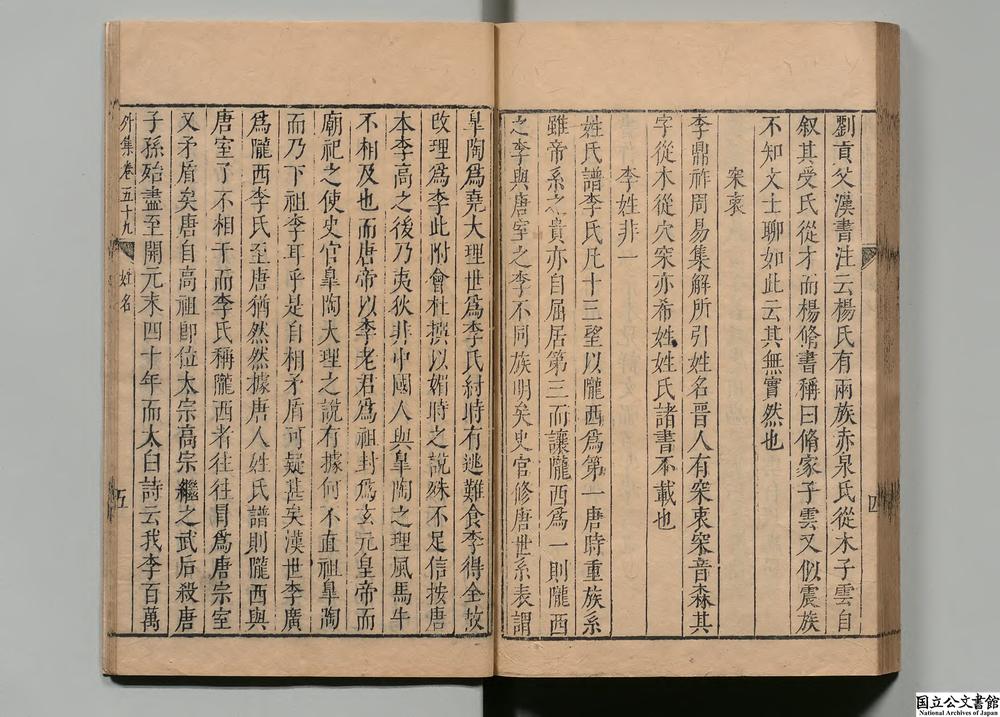 劉貢父漢書注云楊氏有兩族赤泉氏從木子雲自
叙其受氏從才而楊脩書稱曰脩家子雲又似震族
不知文士聊如此云其無實然也
穼衷
李鼎祚周易集解所引姓名晉人有穼衷穼音森其
字從木從穴穼亦希姓姓氏諸書不載也
李姓非一
姓氏譜李氏凡十三望以隴西爲第一唐時重族系
雖帝系之貴亦自屈居第三而讓隴西爲一則隴西
之李與唐室之李不同族明矣史官修唐世系表謂
四
皐陶爲堯大理世爲李氏紂時有逃難食李得全故
改理爲李此附會杜撰以媚時之說殊不足信按唐
本李高之後乃夷狄非中國人與皐陶之理風馬牛
不相及也而唐帝以李老君爲祖封爲玄元皇帝而
廟祀之使史官皐陶大理之說有據何不直祖皐陶
而乃下祖李耳乎是自相矛盾可疑甚矣漢世李廣
爲隴西李氏至唐猶然然據唐人姓氏譜則隴西與
唐室了不相干而李氏稱隴西者往往冒爲唐宗室
又矛盾矣唐自高祖卽位太宗高宗繼之武后殺唐
子孫始盡至開元末四十年而太白詩云我李百萬
外集卷五十九 姓名 五
国立公文書館
National Archives of Japan